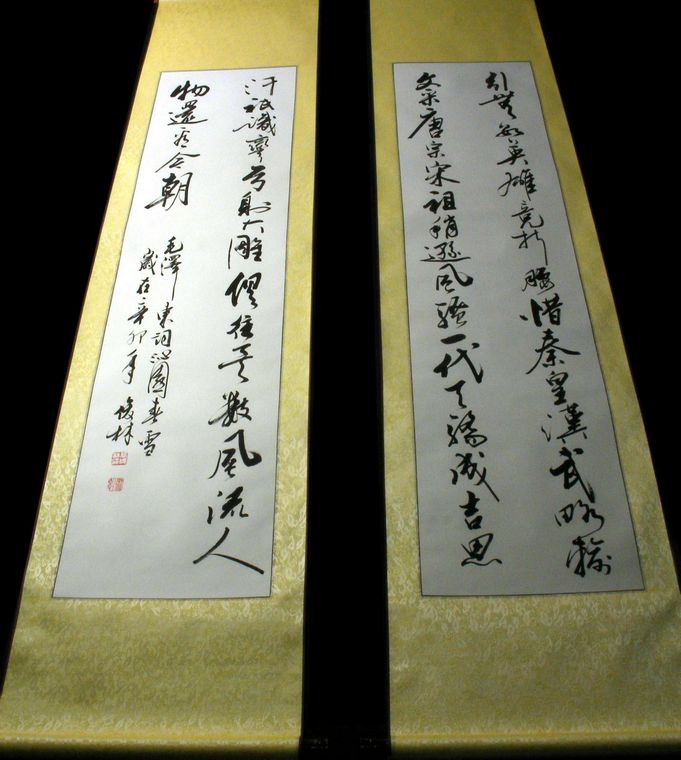 引無數英雄競折腰惜秦皇漢武略輸
文采唐宗宋祖稍遜風騷一代天驕成吉思
汗祇識彎弓射大雕俱往矣數風流人
物還看今朝
毛澤東詞沁園春雪
歲在辛卯年 林